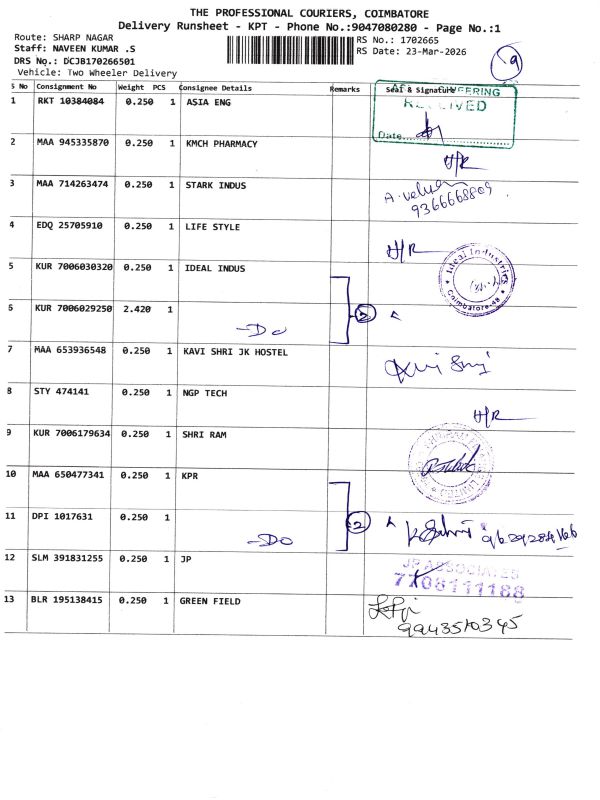 THE PROFESSIONAL COURIERS, COIMBATORE
Delivery Runsheet - KPT - Phone No.:9047080280 - Page No.:1
Route: SHARP NAGAR RS No.: 1702665
Staff: NAVEEN KUMAR .S RS Date: 23-Mar-2026
DRS No.: DCJB170266501
Vehicle: Two Wheeler Delivery
9
S No Consignment No Weight PCS Consignee Details Remarks Seal & Signature
1 RKT 10384084 0.250 1 ASIA ENG
RECEIVED
Date
2 MAA 945335870 0.250 1 KMCH PHARMACY
H/R
3 MAA 714263474 0.250 1 STARK INDUS
9366668809
4 EDQ 25705910 0.250 1 LIFE STYLE
H/R
5 KUR 7006030320 0.250 1 IDEAL INDUS
Ideal Industries
Coimbatore-48
6 KUR 7006029250 2.420 1
-Do 2
7 MAA 653936548 0.250 1 KAVI SHRI JK HOSTEL
8 STY 474141 0.250 1 NGP TECH
H/R
9 KUR 7006179634 0.250 1 SHRI RAM
10 MAA 650477341 0.250 1 KPR
11 DPI 1017631 0.250 1
-Do 2
12 SLM 391831255 0.250 1 JP
JP ASSOCIATES
7708111188
13 BLR 195138415 0.250 1 GREEN FIELD
9943510345